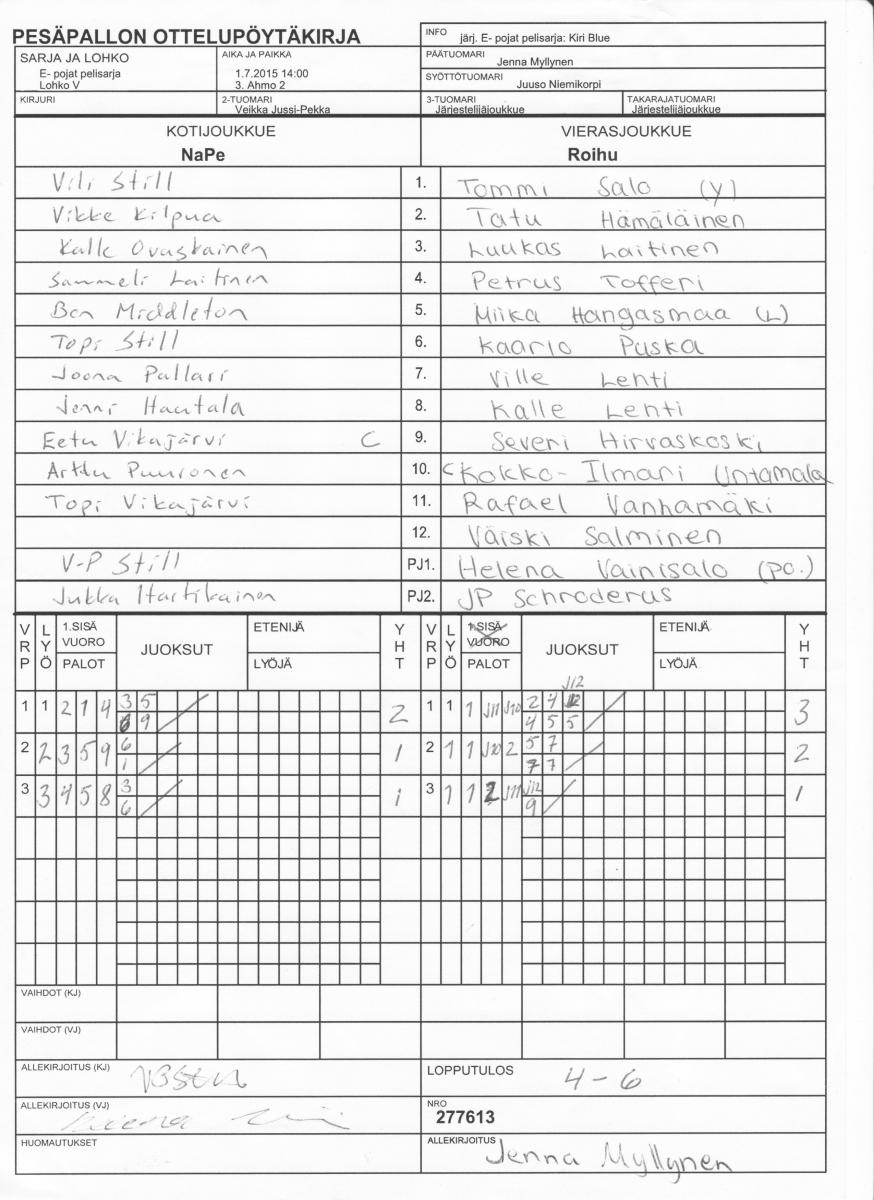 PESÄPALLON OTTELUPÖYTÄKIRJA
INFO järj. E- pojat pelisarja: Kiri Blue
SARJA JA LOHKO
E- pojat pelisarja
Lohko V
AIKA JA PAIKKA
1.7.2015 14:00
3. Ahmo 2
PÄÄTUOMARI
Jenna Myllynen
SYÖTTÖTUOMARI
Juuso Niemikorpi
KIRJURI
2-TUOMARI
Veikka Jussi-Pekka
3-TUOMARI
Järjestelijäjoukkue
TAKARAJATUOMARI
Järjestelijäjoukkue
KOTIJOUKKUE
NaPe
VIERASJOUKKUE
Roihu
Vili Still 1. Tommi Salo (y)
Vikke Kilpua 2. Tatu Hämäläinen
Kalle Ovaskainen 3. Luukas Laitinen
Sammeli Laitinen 4. Petrus Tofferi
Ben Middleton 5. Miika Hangasmaa (L)
Topi Still 6. Kaarlo Puska
Joona Pallari 7. Ville Lehti
Jenni Hautala 8. Kalle Lehti
Eetu Vikajärvi C 9. Severi Hirvaskoski
Arttu Puuronen 10. Kokko-Ilmari Untamala
Topi Vikajärvi 11. Rafael Vanhamäki
12. Väiski Salminen
V-P Still PJ1. Helena Vainisalo (po.)
Jukka Hartikainen PJ2. JP Schroderus
VRP LYÖ 1.SISÄ VUORO PALOT JUOKSUT ETENIJÄ LYÖJÄ YHT VRP LYÖ 1.SISÄ VUORO PALOT JUOKSUT ETENIJÄ LYÖJÄ YHT
J12
1 1 2 1 4 3 5 2 1 1 1 J11 J10 2 4 J12 3
8 9 4 5 5
2 2 3 5 9 6 1 2 1 1 J10 2 5 7 2
1 7 7
3 3 4 5 8 3 1 3 1 1 2 J11 J12 1
6 9
VAIHDOT (KJ)
VAIHDOT (VJ)
ALLEKIRJOITUS (KJ)
LOPPUTULOS 4-6
ALLEKIRJOITUS (VJ)
NRO
277613
HUOMAUTUKSET
ALLEKIRJOITUS Jenna Myllynen